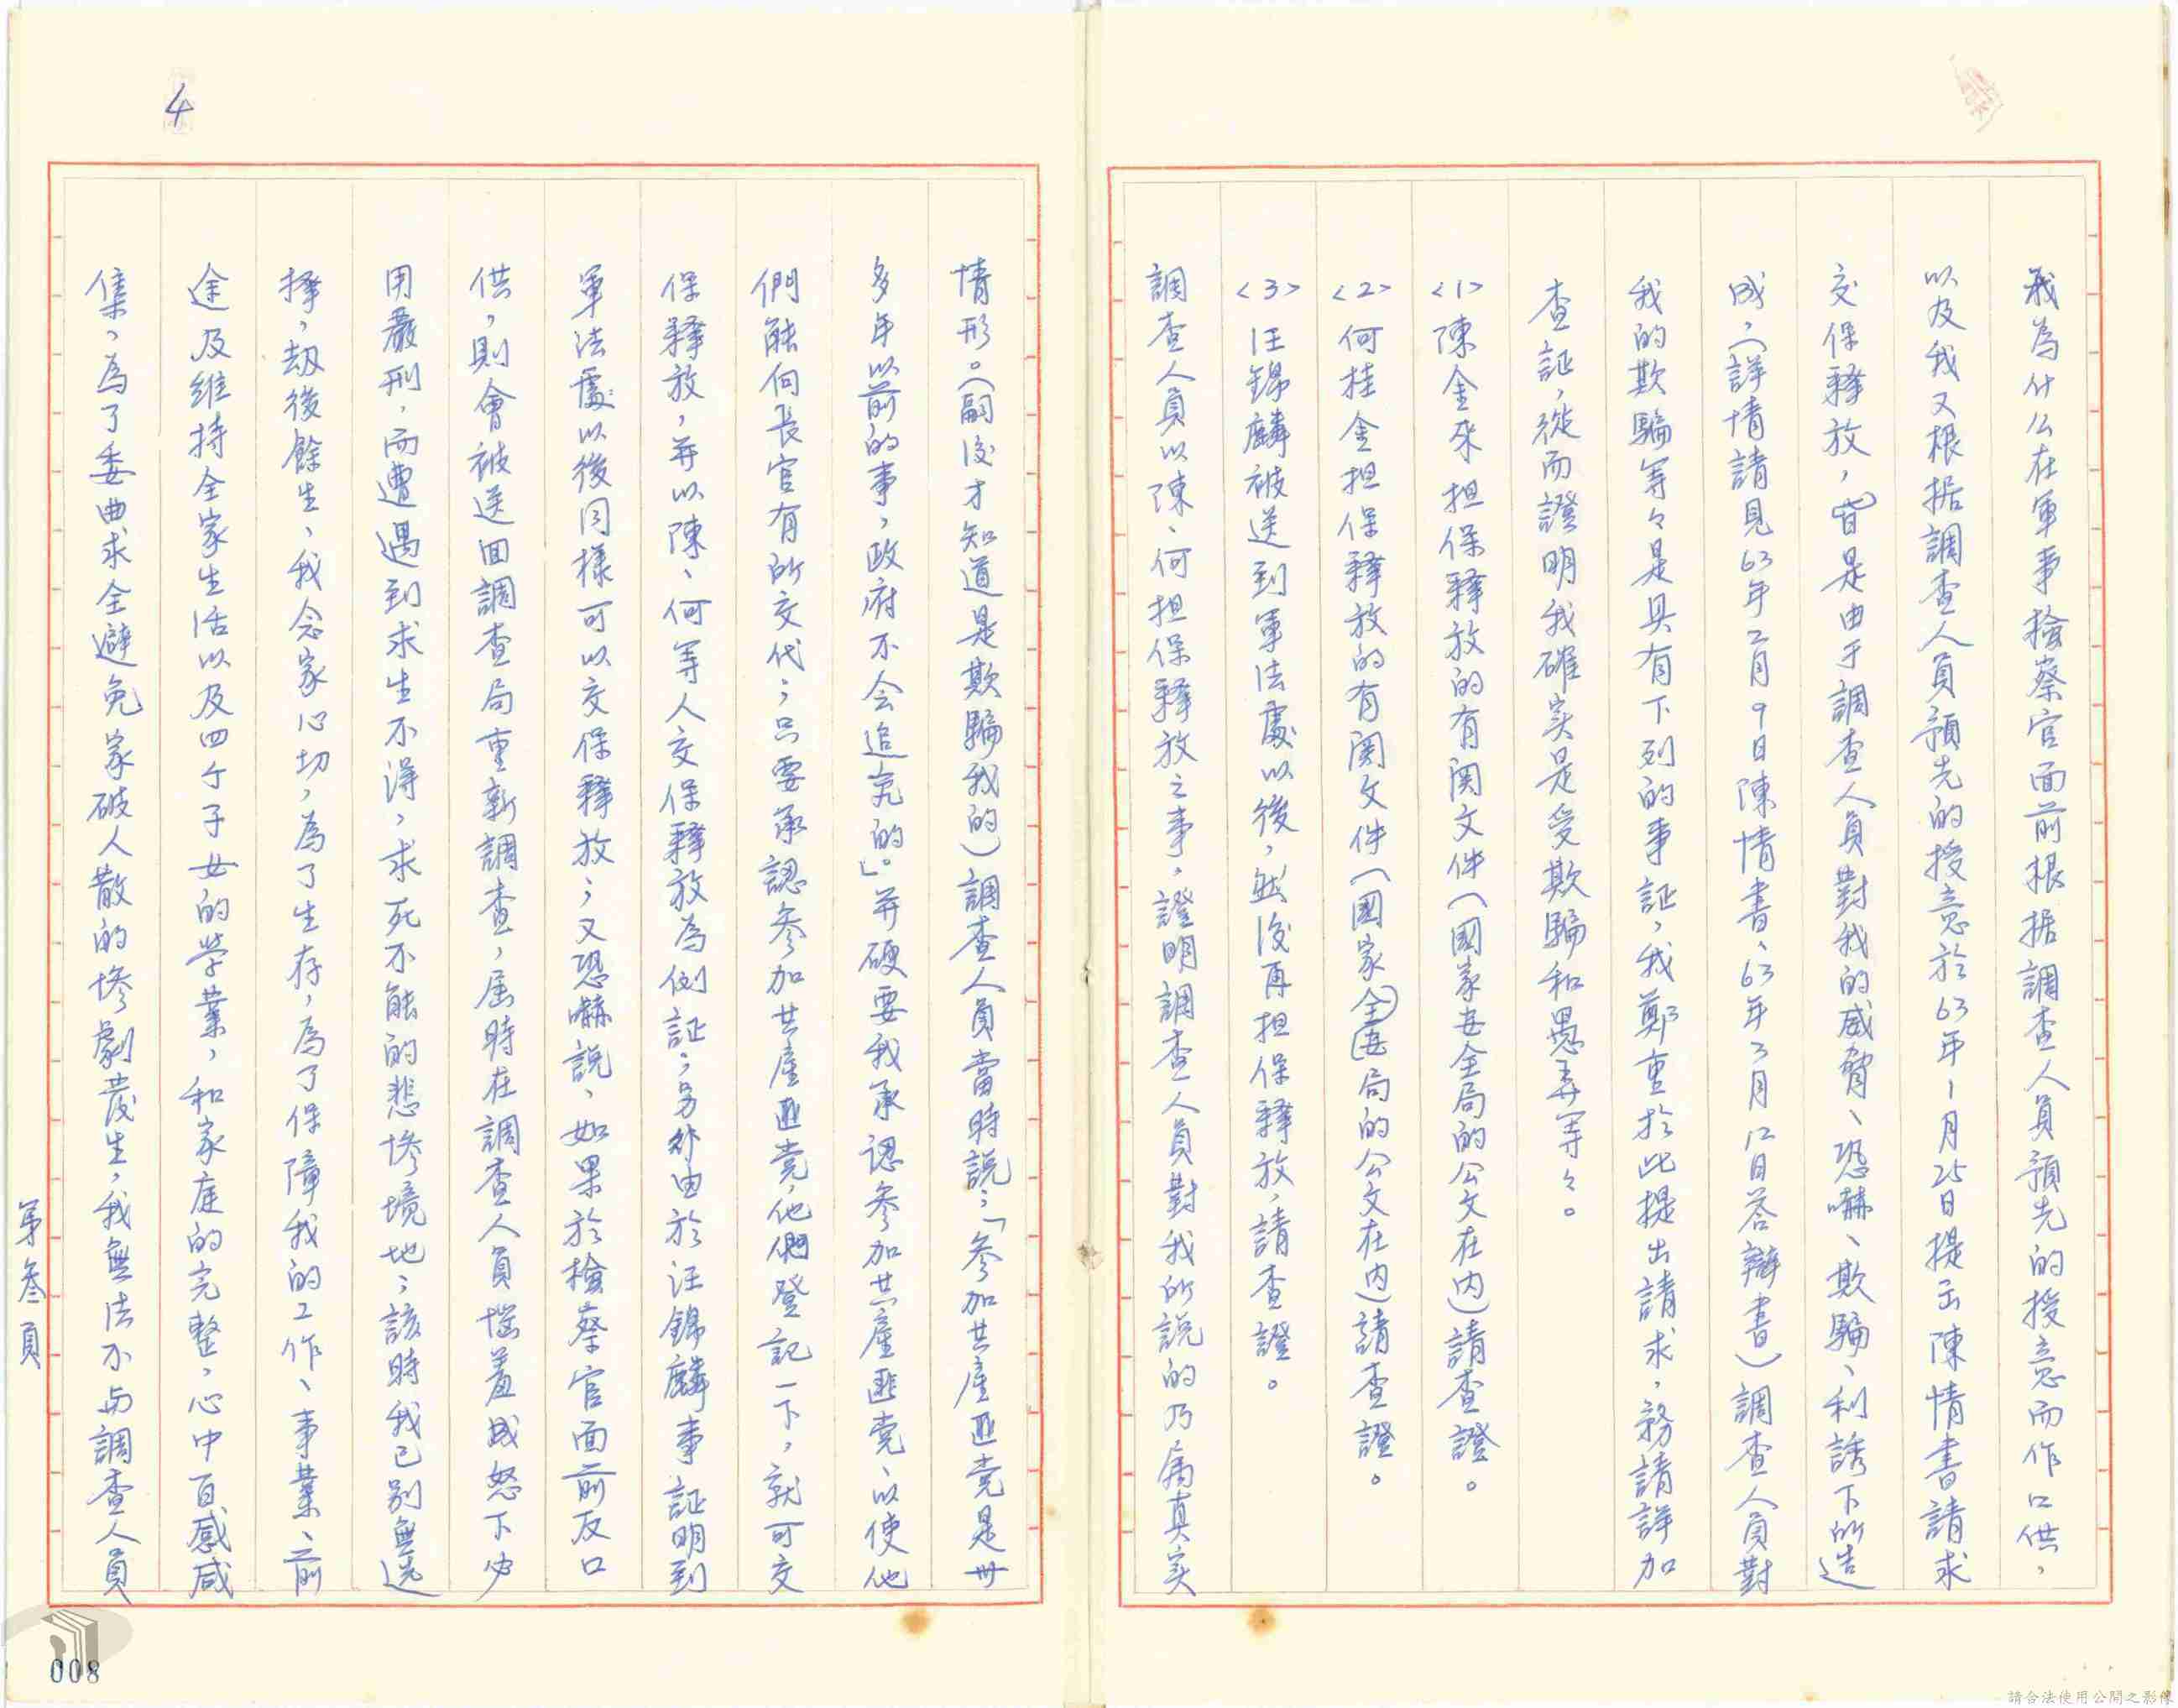 我為什么在軍事檢察官面前根据調查人員預先的授意而作口供，
以及我又根据調查人員預先的授意於63年1月25日提出陳情書請求
交保釋放，皆是由于調查人員對我的威脅、恐嚇、欺騙、利誘下所造
成，（詳情請見63年2月9日陳情書、63年3月12日答辯書）調查人員對
我的欺騙等々是具有下列的事証，我鄭重於此提出請求，務請詳加
查証，從而證明我確实是受欺騙和愚弄等々。
<1>陳金來担保釋放的有関文件（國家安全局的公文在內）請查證。
<2>何桂金担保釋放的有関文件（國家全安局的公文在內）請查證。
<3>汪錦麟被送到軍法處以後，然後再担保釋放，請查證。
調查人員以陳、何担保釋放之事，證明調查人員對我所説的乃属真实
情形。（嗣後才知道是欺騙我的）調查人員當時説：「參加共產匪党是卅
多年以前的事，政府不会追究的」。并硬要我承認參加共產匪党、以使他
們能向長官有所交代；只要承認參加共產匪党，他們登記一下，就可交
保釋放，并以陳、何等人交保釋放為例証；另外由於汪錦麟事証明到
軍法處以後同樣可以交保釋放；又恐嚇説，如果於檢察官面前反口
供，則會被送回調查局重新調查，屆時在調查人員惱羞成怒下必
用嚴刑，而遭遇到求生不得，求死不能的悲慘境地；該時我已別無選
擇，劫後餘生，我念家心切，為了生存，為了保障我的工作、事業、前
途及維持全家生活以及四个子女的学業，和家庭的完整，心中百感咸
集，為了委曲求全避免家破人散的慘劇發生，我無法不与調查人員
第叁頁
4
008
請合法使用公開之影像